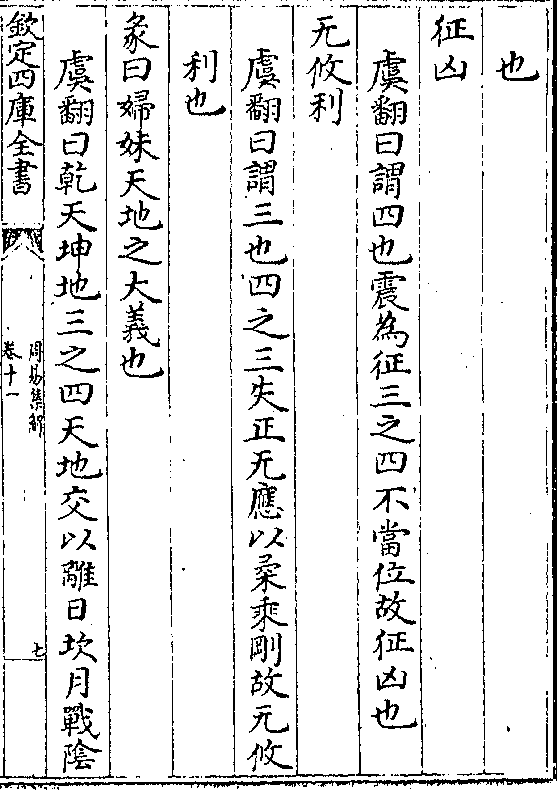 也
征凶
虞翻曰謂四也震為征三之四不當位故征凶也
无攸利
虞翻曰謂三也四之三失正无應以柔乘剛故无攸
利也
彖曰歸妹天地之大義也
虞翻曰乾天坤地三之四天地交以離日坎月戰陰
欽定四庫全書
周易集解
卷十一
七